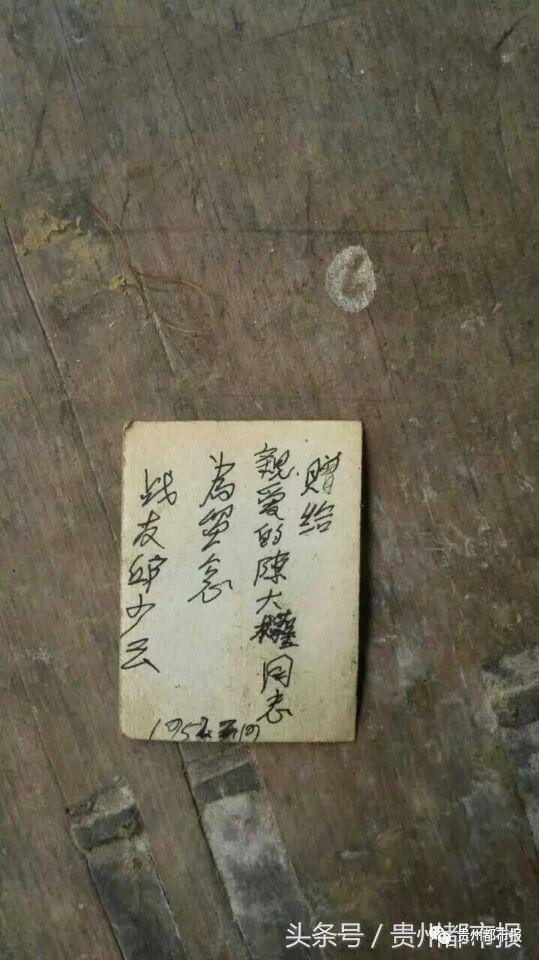 贈给
親愛的陳大權同志
為留念
战友邱少云
1952
头条号 / 贵州都市报
贵州都市报